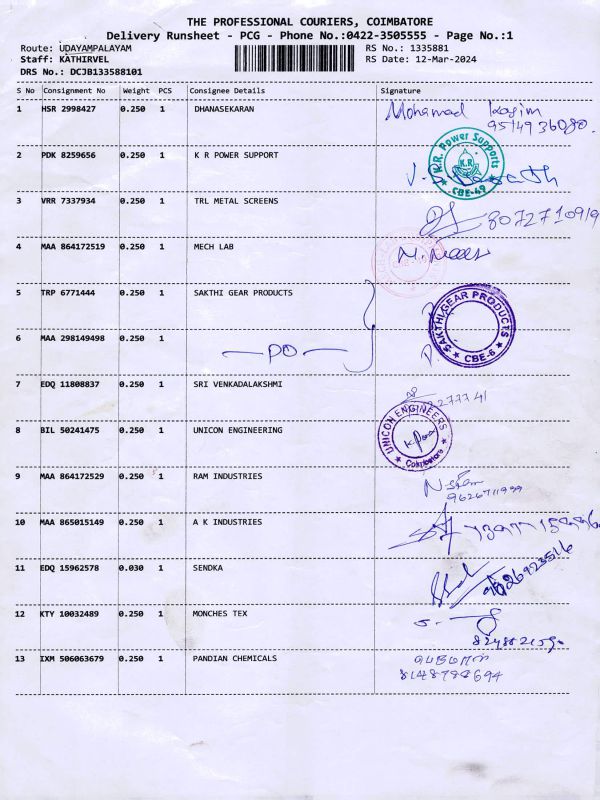 THE PROFESSIONAL COURIERS, COIMBATORE
Delivery Runsheet - PCG - Phone No.:0422-3505555 - Page No.:1
Route: UDAYAMPALAYAM RS No.: 1335881
Staff: KATHIRVEL RS Date: 12-Mar-2024
DRS No.: DCJB133588101
S No Consignment No Weight PCS Consignee Details Signature
1 HSR 2998427 0.250 1 DHANASEKARAN Mohamad Kasim
2 PDK 8259656 0.250 1 K R POWER SUPPORT K.R. Power Supports CBE-49
3 VRR 7337934 0.250 1 TRL METAL SCREENS
4 MAA 864172519 0.250 1 MECH LAB
5 TRP 6771444 0.250 1 SAKTHI GEAR PRODUCTS SAKTHI GEAR PRODUCTS CBE-6
6 MAA 298149498 0.250 1 DO
7 EDQ 11808837 0.250 1 SRI VENKADALAKSHMI
8 BIL 50241475 0.250 1 UNICON ENGINEERING UNICON ENGINEERS Coimbatore
9 MAA 864172529 0.250 1 RAM INDUSTRIES
10 MAA 865015149 0.250 1 A K INDUSTRIES
11 EDQ 15962578 0.030 1 SENDKA
12 KTY 10032489 0.250 1 MONCHES TEX
13 IXM 506063679 0.250 1 PANDIAN CHEMICALS
8148788694